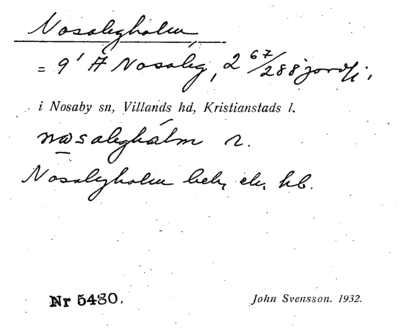 Nosabyholm,
= 9¹ A Nosaby, 2 67/288 jordj.,
i Nosaby sn, Villands hd, Kristianstads l.
nosabyhålm r.
Nosabyholm beb, ek. kb.
Nr 5480.
John Svensson. 1932.